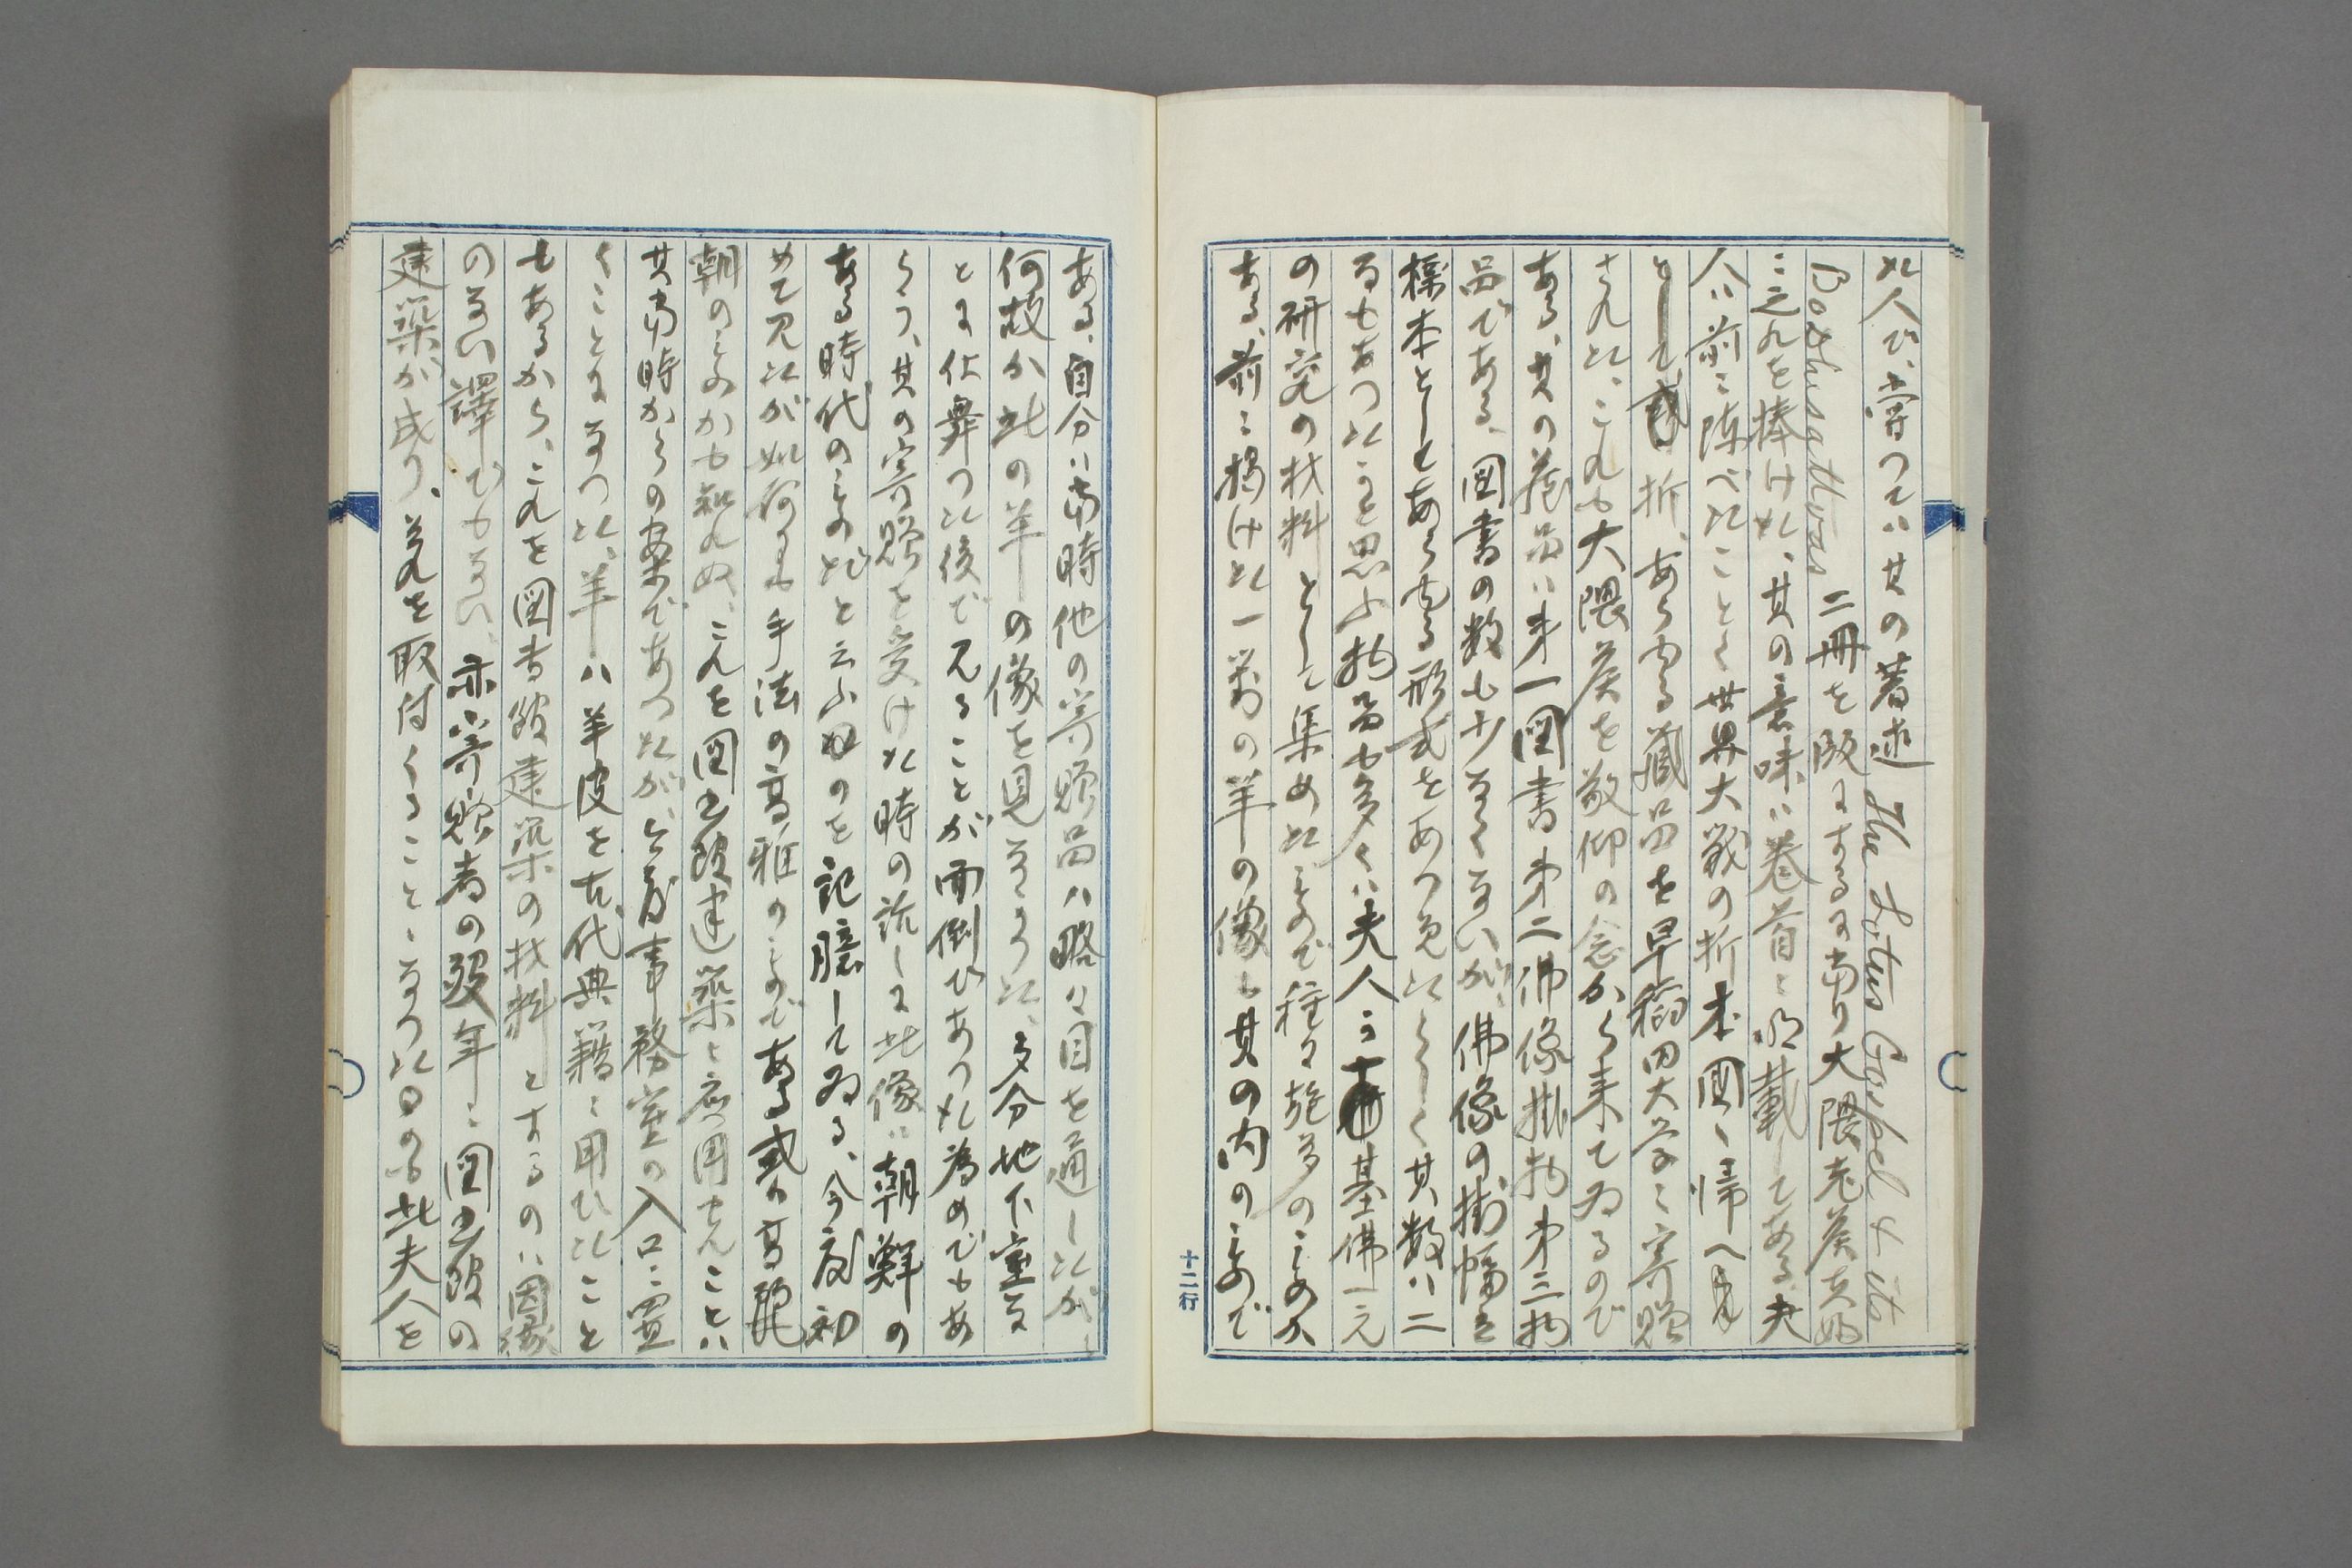 た人で、嘗つてハ其の著述 The Lotus Gospel & its
Bodhisattvas 二冊を版にするに当り大隈老侯夫婦
ニ之れを捧げた、其の意味ハ巻首ニ明載してある、夫
人ハ前ニ陳べたことく世界大戦の折本国へ帰へ
として 折、あらゆる蔵品を早稲田大学ニ寄贈
された、これも大隈侯を敬仰の念から来てゐるので
ある、其の蔵品ハ第一図書第二佛像掛物第三拓
品である、図書の数も少なくないが、佛像の掛幅を
標本としてあらゆる形式をあつめたらしく其数ハ二
るもあつたかと思ふ拓品も多くハ夫人が 基佛一元
の研究の材料として集めたもので種々施多のものか
ある、前ニ掲けた一対の羊の像も其の内のもので
十二行
ある、自分ハ当時他の寄贈品ハ略々目を通したが、
何故か此の羊の像を見なかつた、多分地下室な
とに仕舞つた後で見ることが面倒であつた為めでもあ
らう、其の寄贈を受けた時の説しに此像ハ朝鮮の
ある時代のものだと云ふのを記臆してゐる、今度初
めて見たが如何にも手法の高雅のもので ある或ハ高麗
朝のものかも知れぬ、これを図書館建築ニ応用せんことハ
其当時からの案であつたが、 事務室の入口ニ置
くことになつた、羊ハ羊皮を古代典籍ニ用ひたこと
もあるから、これを図書館建築の材料とするのハ因縁
のない譯でもない、亦寄贈者の歿年ニ図書館の
建築が成り、之れを取付くることゝなつた日の 此夫人を